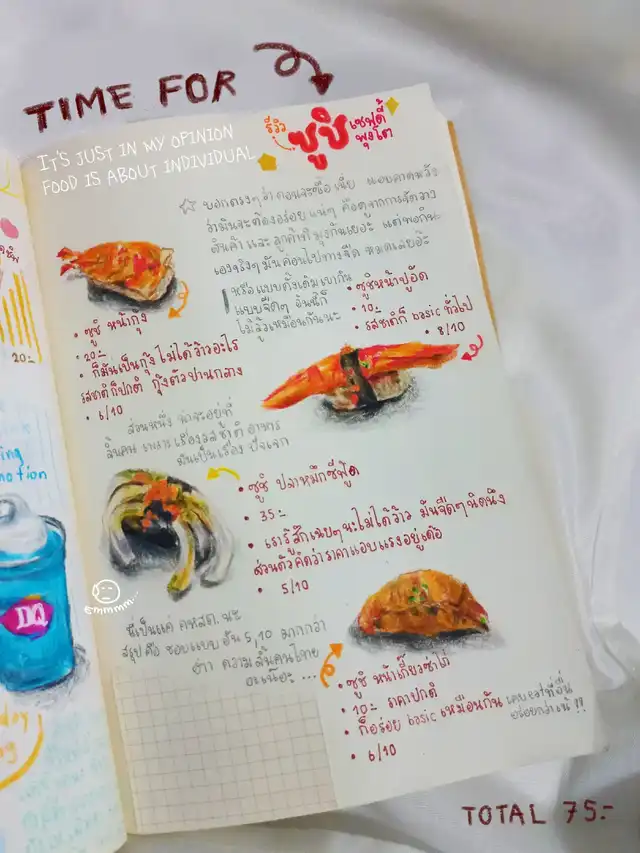 TIME FOR
IT'S JUST IN MY OPINION
FOOD IS ABOUT INDIVIDUAL
รีวิว ซูชิ เซนดี้
พุงโต
บอกตรงๆว่าตอนจะซื้อเนี่ย แอบคาดหวัง
ว่ามันจะต้องอร่อยแน่ๆ คือดูจากการจัดวาง
สินค้า และ ลูกค้าที่มุงกันเยอะ แต่พอกิน
เองจริงๆมันค่อนไปทางจืด หมดเลยอ้ะ
หรือแบบดั้งเดิมเขากิน
แบบจืดๆ อันนี้ก็
ไม่รู้เหมือนกันนะ
• ซูชิ หน้ากุ้ง
• 20.-
• ก็มันเป็นกุ้ง ไม่ได้ว้าวอะไร
รสชาติก็ปกติ กุ้งตัวปานกลาง
• 6/10
• ซูชิหน้าปูอัด
• 10.-
• รสชาติก็ basic ทั่วไป
• 8/10
ส่วนหนึ่ง น่าจะอยู่ที่
ลิ้นคน เพราะเรื่องรสชาติ อาหาร
มันเป็นเรื่อง ปัจเจก
• ซูชิ ปลาหมึกซีฟู้ด
• 35.-
• เรารู้สึกเฉยๆนะไม่ได้ว้าว มันจืดๆนิดนึง
ส่วนตัวคิดว่าราคาแอบแรงอยู่เด้อ
• 5/10
emmmm...
นี่เป็นแค่ คหสต. นะ
สรุปคือ ชอบแบบ อัน 5,10 มากกว่า
ความลิ้นคนไทย
อะเนอะ ...
• ซูชิ หน้าเกี๊ยวซ่าไก่
• 10.- ราคาปกติ
• ก็อร่อย basic เหมือนกัน เคย eat ที่อื่น
อร่อยกว่านี้ !!
• 6/10
TOTAL 75.-
20.-
DQ